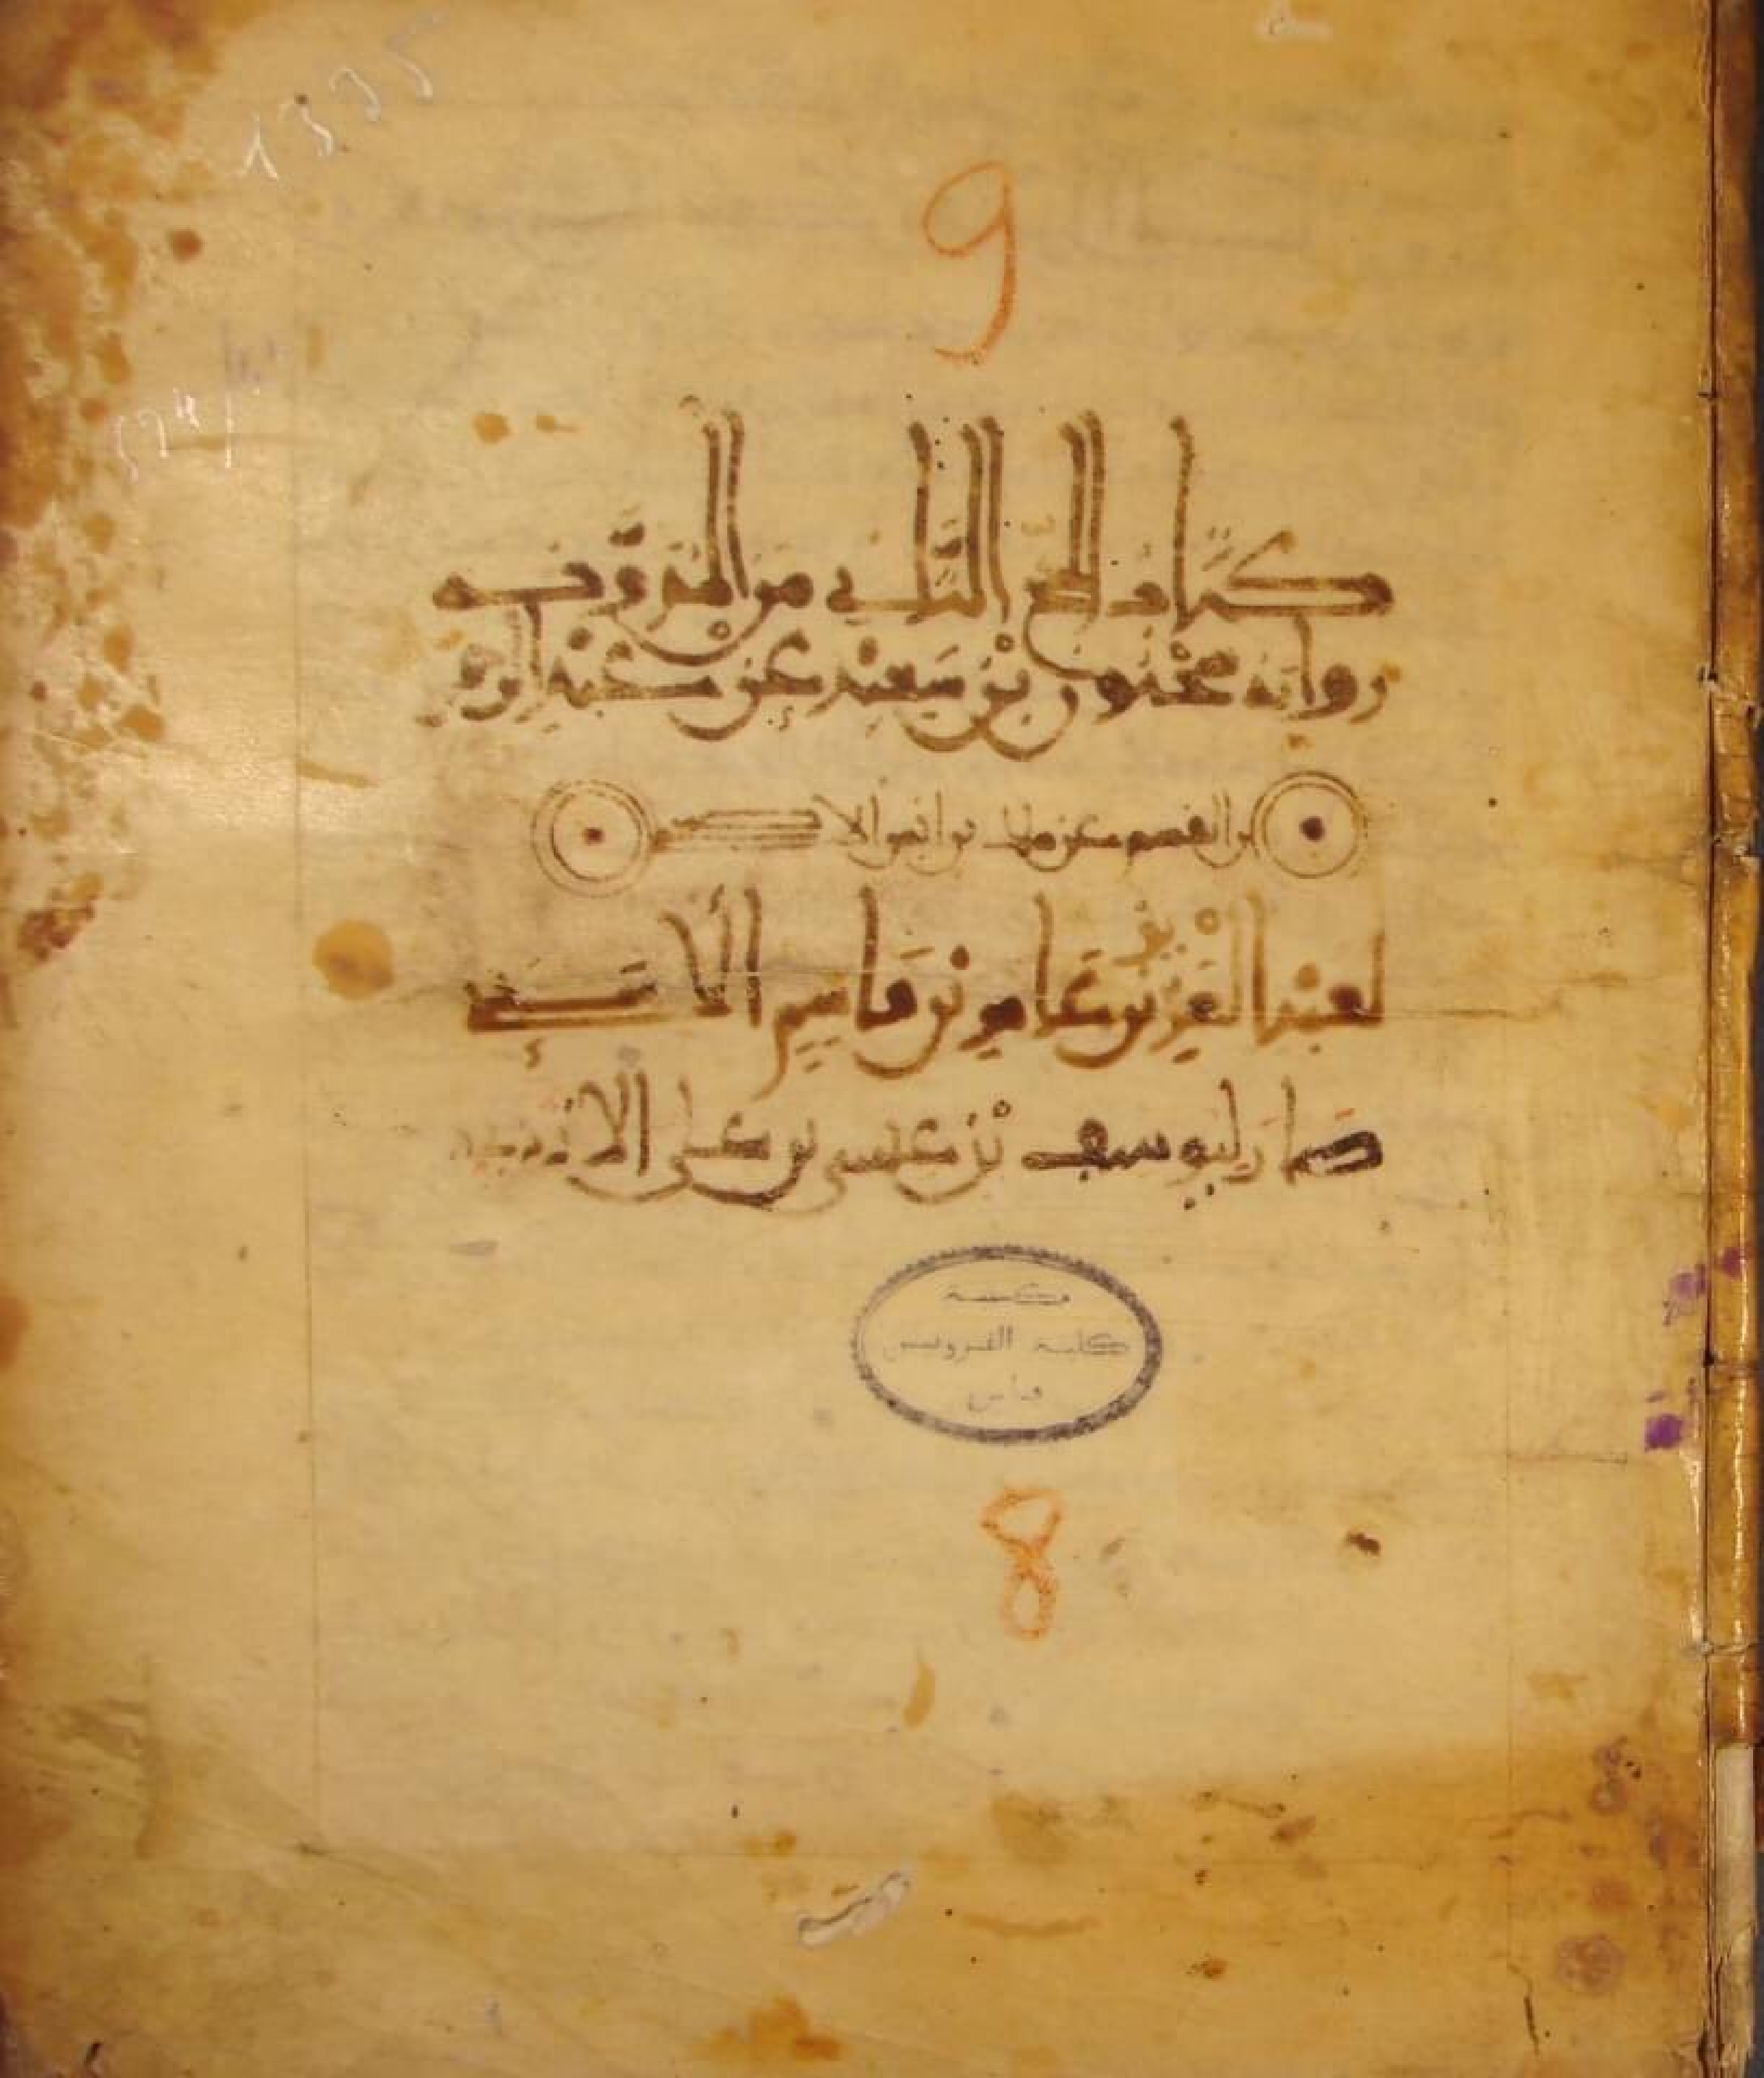 1335
9
كتاب الحج الثاني من المدونة
رواية سحنون بن سعيد عن عبد الرحمن
بن القسم عن ملك بن انس الا
لعبد العزيز بن عامر بن قاسم
صار ليوسف بن عيسى بن علي الازدي
مكتبة
كلية القرويين
فاس
8